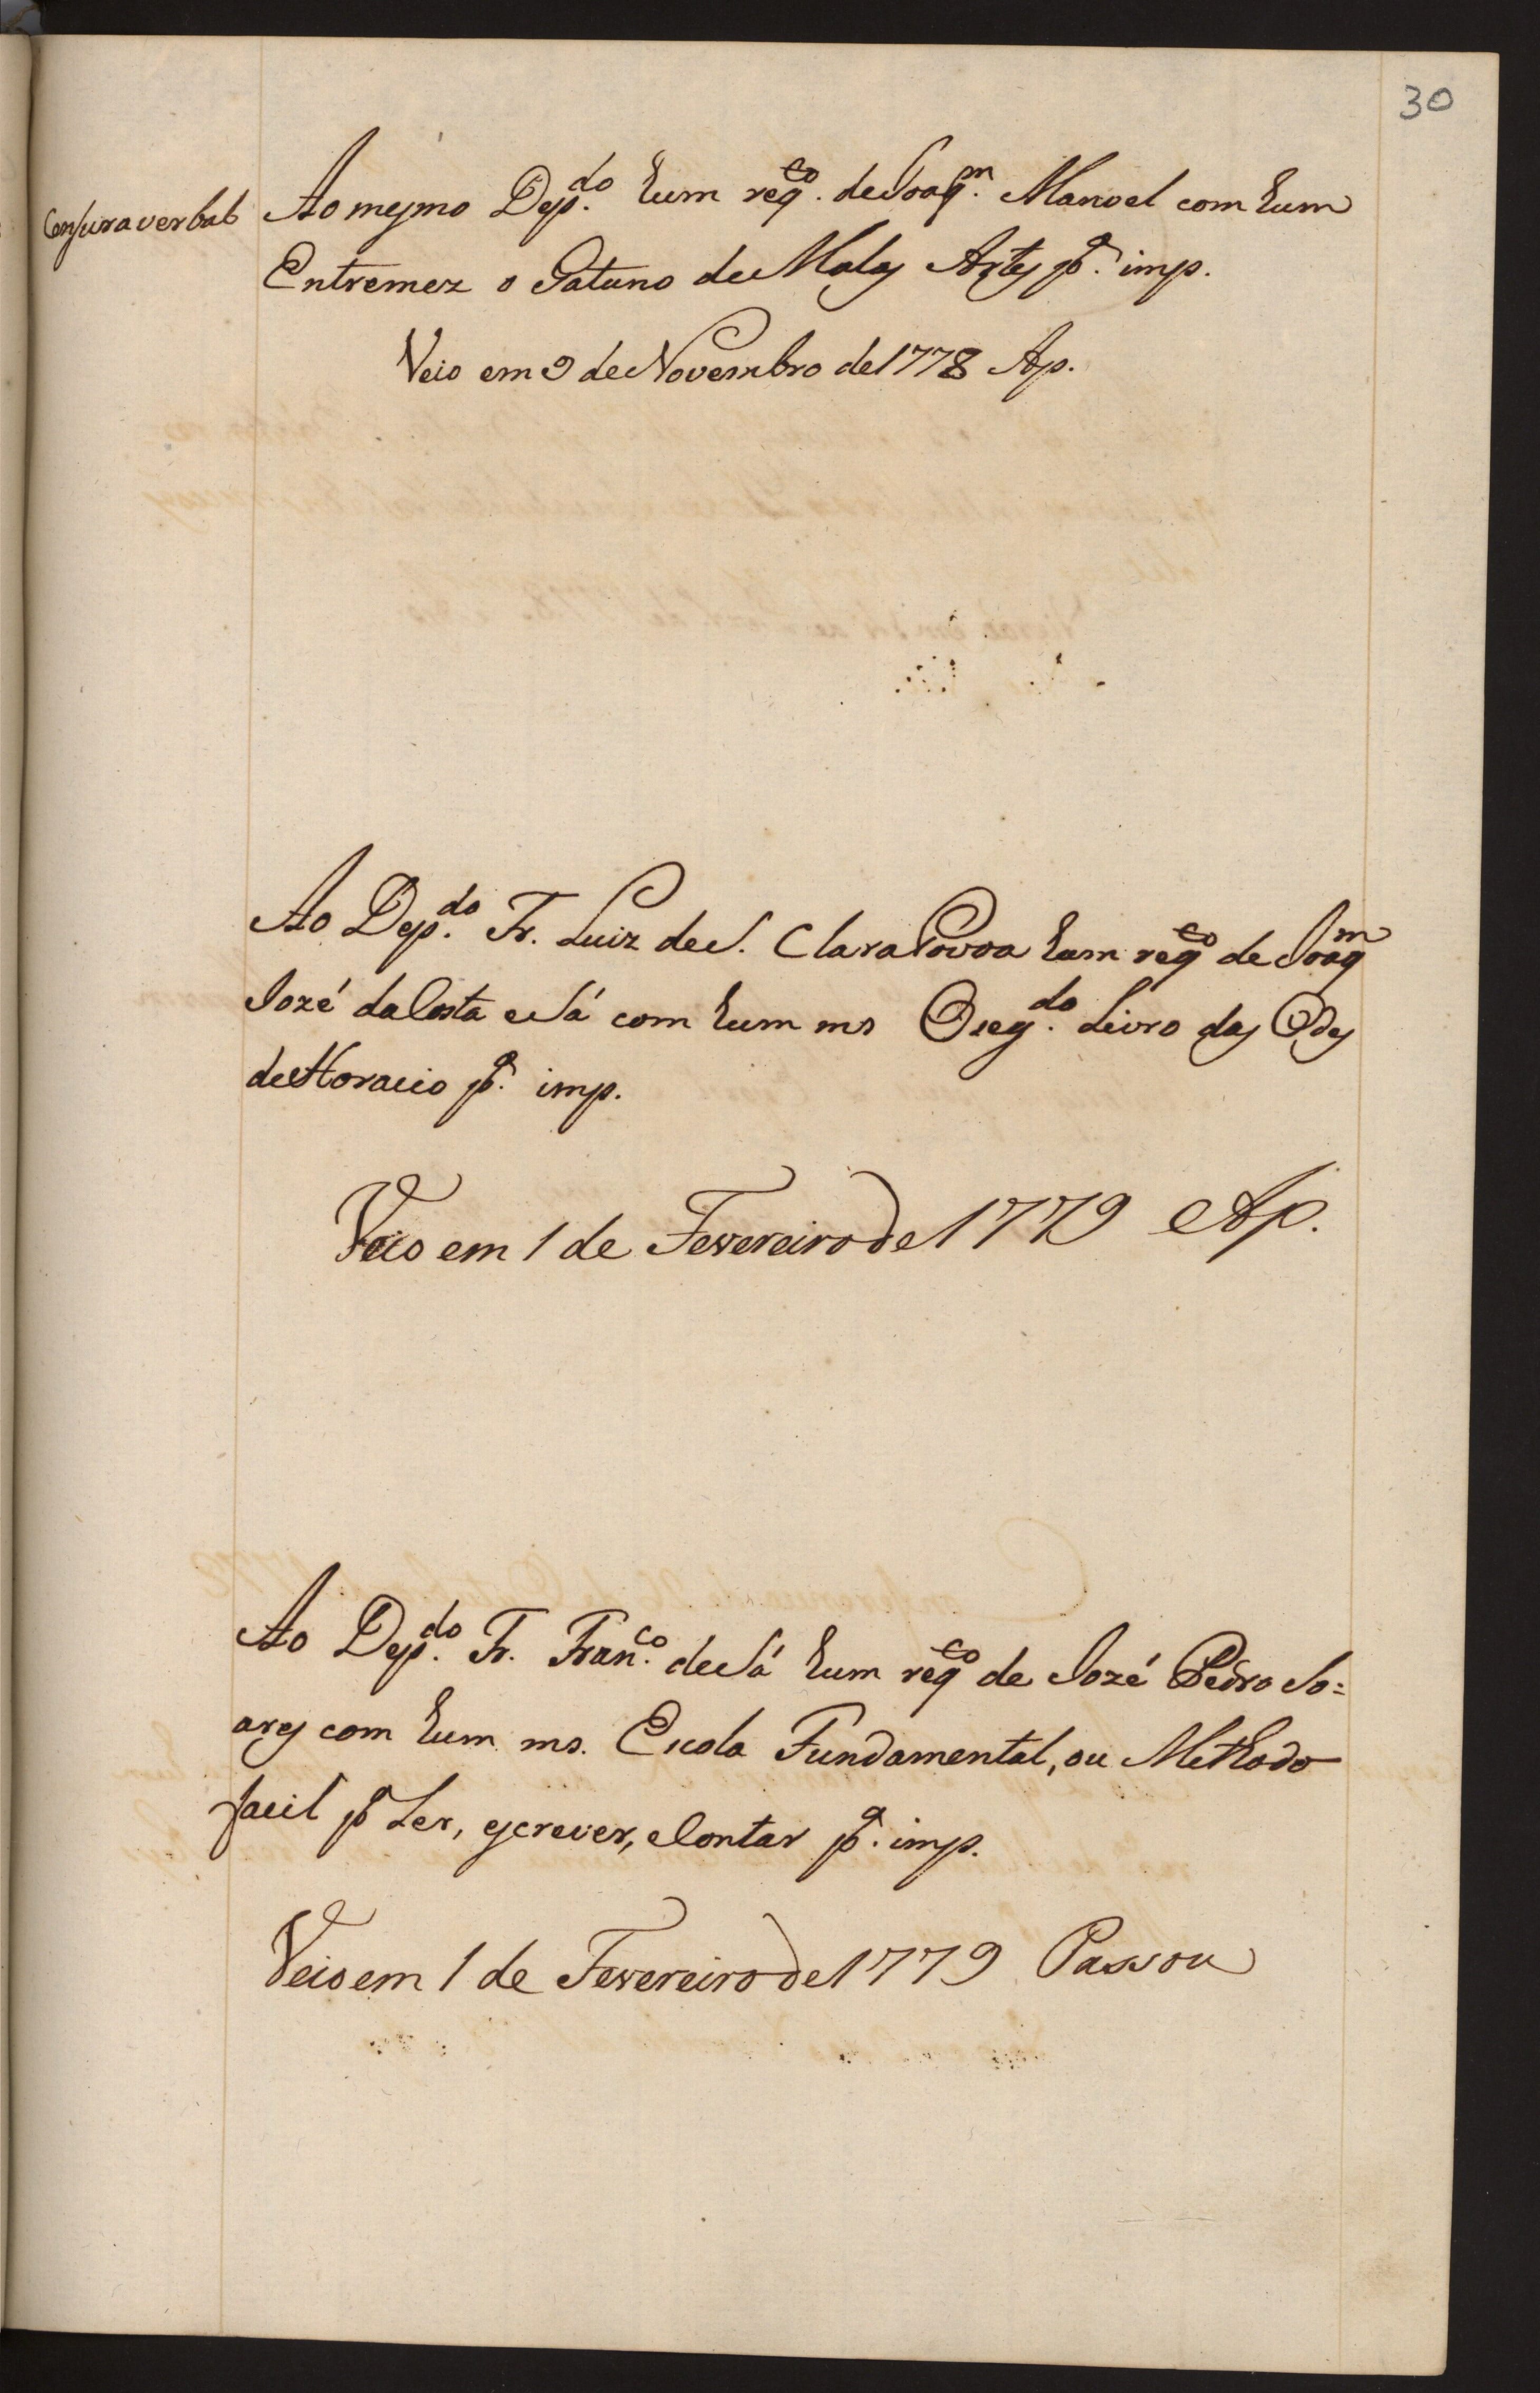 30
Censura verbal
Ao mesmo Dep.do hum req.to de Joaq.m Manoel com hum
Entremez o Gatuno de Malas Artes p.a imp.
Veio em 9 de Novembro de 1778 Ap.
Ao Dep.do Fr. Luiz de S. Clara Povoa hum req.to de Joaq.m
Jozé da Costa e Sá com hum ms O seg.do Livro das Odes
de Horacio p.a imp.
Veio em 1 de Fevereiro de 1779 Ap.
Ao Dep.do Fr. Fran.co de Sá hum req.to de Jozé Pedro So=
ares com hum ms. Escola Fundamental, ou Methodo
facil p.a Ler, escrever, e Contar p.a imp.
Veio em 1 de Fevereiro de 1779 Passou